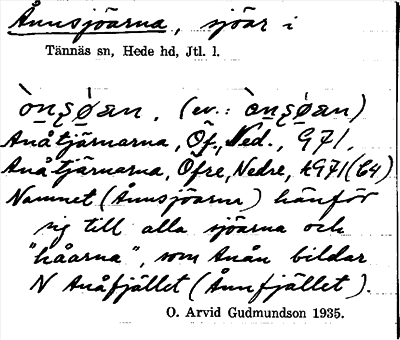 Ånnsjöarna, sjöar i
Tännäs sn, Hede hd, Jtl. l.
(ev.:
Anåtjärnarna, Öf., Ned., G 71,
Anåtjärnarna, Öfre, Nedre, kG71(64)
Namnet (Ånnsjöarna) hänför
sig till alla sjöarna och
"håarna", som Anån bildar
N Anåfjället (Ånnfjället).
O. Arvid Gudmundson 1935.